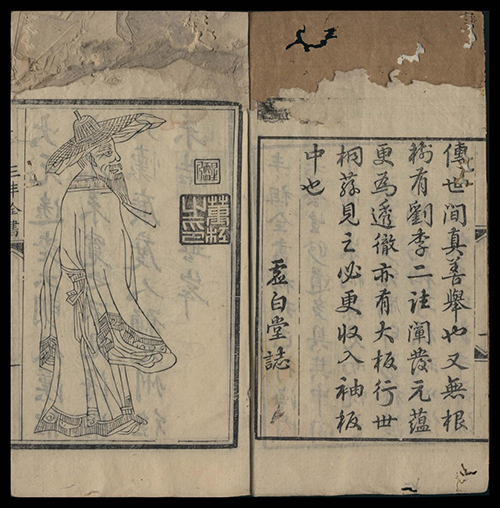 傳世間真善舉也又無根
樹有劉李二註闡發元蘊
更為透徹亦有大板行世
桐蓀見之必更收入袖板
中也
虛白堂誌
三丰全書